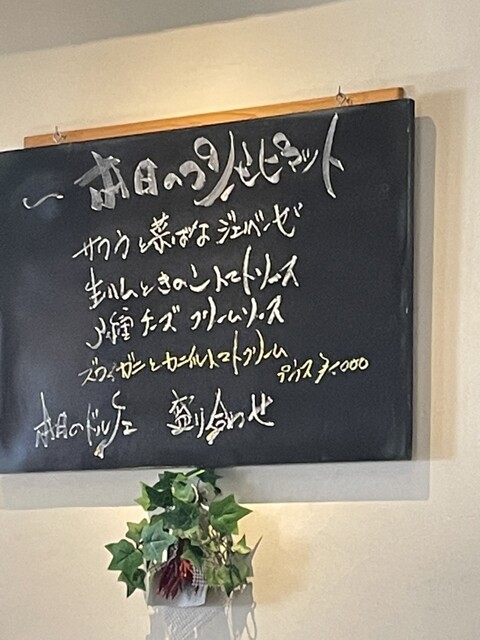 〜 本日のプリモピアット
サワラと菜ばな ジェノベーゼ
生ハムときのこ トマトソース
3種チーズ クリームソース
ズワイガニと トマトクリーム
プラス ¥1,000
本日のドルチェ 盛り合わせ